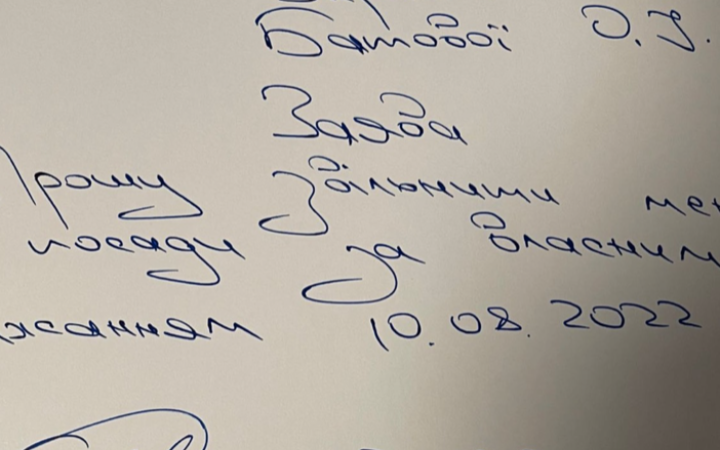 Батової О. І.
Заява
Прошу звільнити мен
посади за власним
жанням 10.08.2022